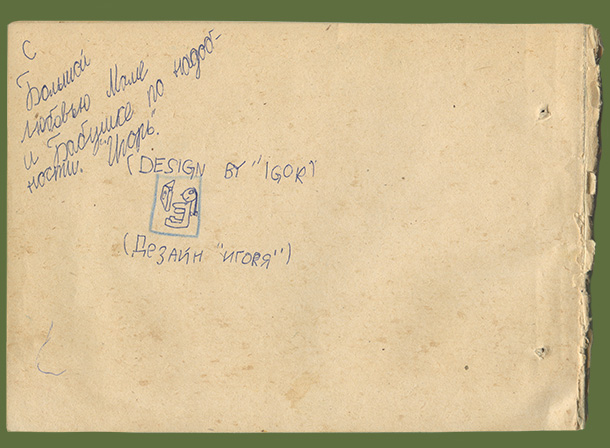 С
Большой
любовью Маме
и Бабушке по надоб-
ности. "Игорь".
(DESIGN BY "IGOR")
(Дезайн "игоRя")